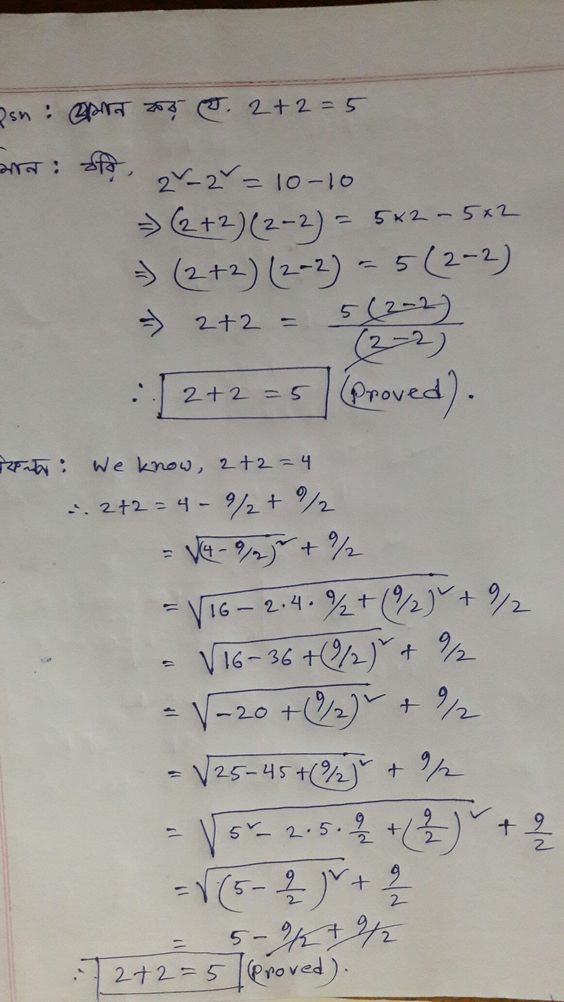 Qsn : প্রমান কর যে. 2+2=5
মান : ধরি,
2² - 2² = 10 - 10
⇒ (2+2)(2-2) = 5×2 - 5×2
⇒ (2+2)(2-2) = 5(2-2)
⇒ 2+2 = 5(2-2)/(2-2)
∴ 2+2 = 5 (Proved).
We know, 2+2=4
∴ 2+2 = 4 - 9/2 + 9/2
= √(4-9/2)² + 9/2
= √16 - 2·4·9/2 + (9/2)² + 9/2
= √16-36+(9/2)² + 9/2
= √-20+(9/2)² + 9/2
= √25-45+(9/2)² + 9/2
= √5² - 2·5·9/2 + (9/2)² + 9/2
= √(5 - 9/2)² + 9/2
= 5 - 9/2 + 9/2
∴ 2+2=5 (Proved).